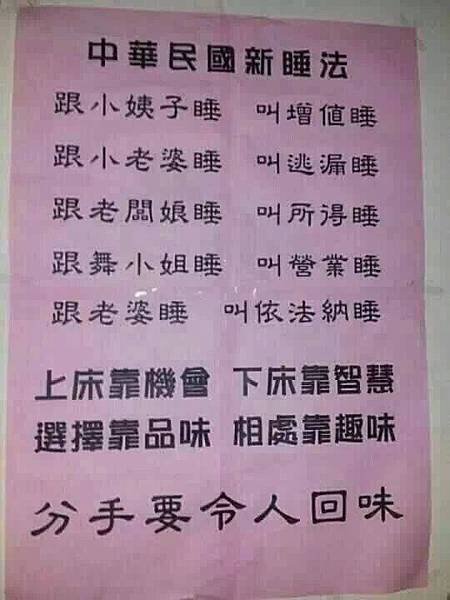 中華民國新睡法
跟小姨子睡 叫增值睡
跟小老婆睡 叫逃漏睡
跟老闆娘睡 叫所得睡
跟舞小姐睡 叫營業睡
跟老婆睡 叫依法納睡
上床靠機會 下床靠智慧
選擇靠品味 相處靠趣味
分手要令人回味